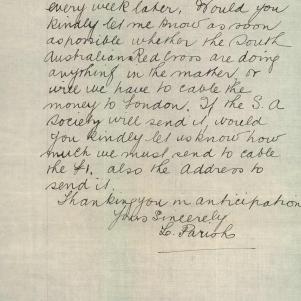 every week later. Would you
kindly let me know as soon
as possible whether the South
Australian Red Cross are doing
anything in the matter or
will we have to cable the
money to London. If the S. A
Society will send it, would
you kindly let us know how
much we must send to cable
the £1. also the Address to
send it.
Thanking you in anticipation
Yours Sincerely
L. Parish